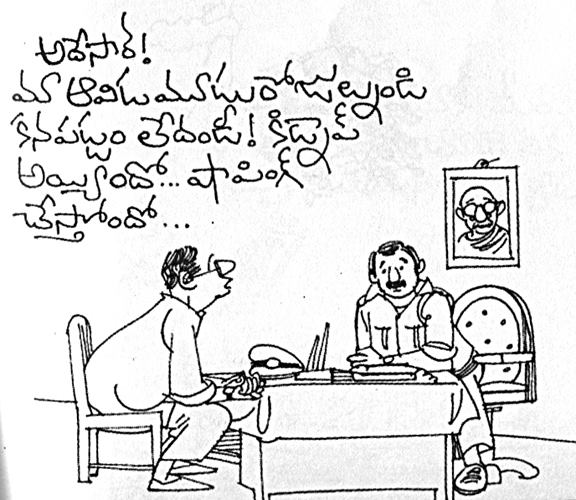 అదేసార్!
మా ఆవిడ మూడురోజుల్నుండి
కనపట్టం లేదండీ! కిడ్నాప్
అయ్యిందో... షాపింగ్
చేస్తోందో...